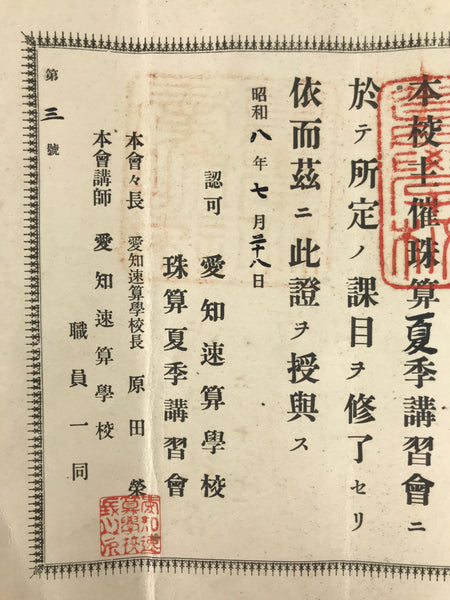 本校主催珠算夏季講習會ニ
於テ所定ノ課目ヲ修了セリ
依而茲ニ此證ヲ授與ス
昭和八年七月二十八日
認可 愛知速算學校
珠算夏季講習會
本會々長 愛知速算學校長 原田榮
本會講師 愛知速算學校
職員一同
第三號